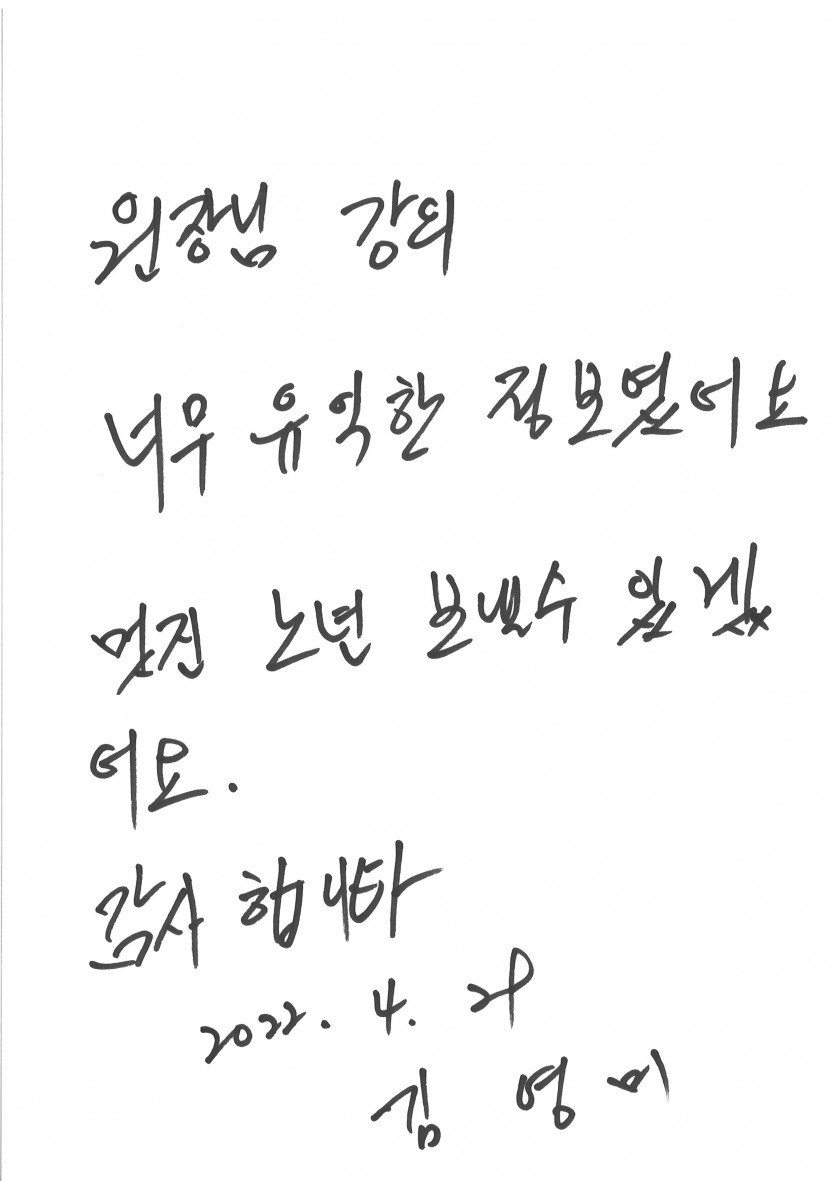 원장님 강의
너무 유익한 정보였어요
멋진 노년 보낼수 있겠
어요.
감사 합니다
2022. 4. 29
김 영 미